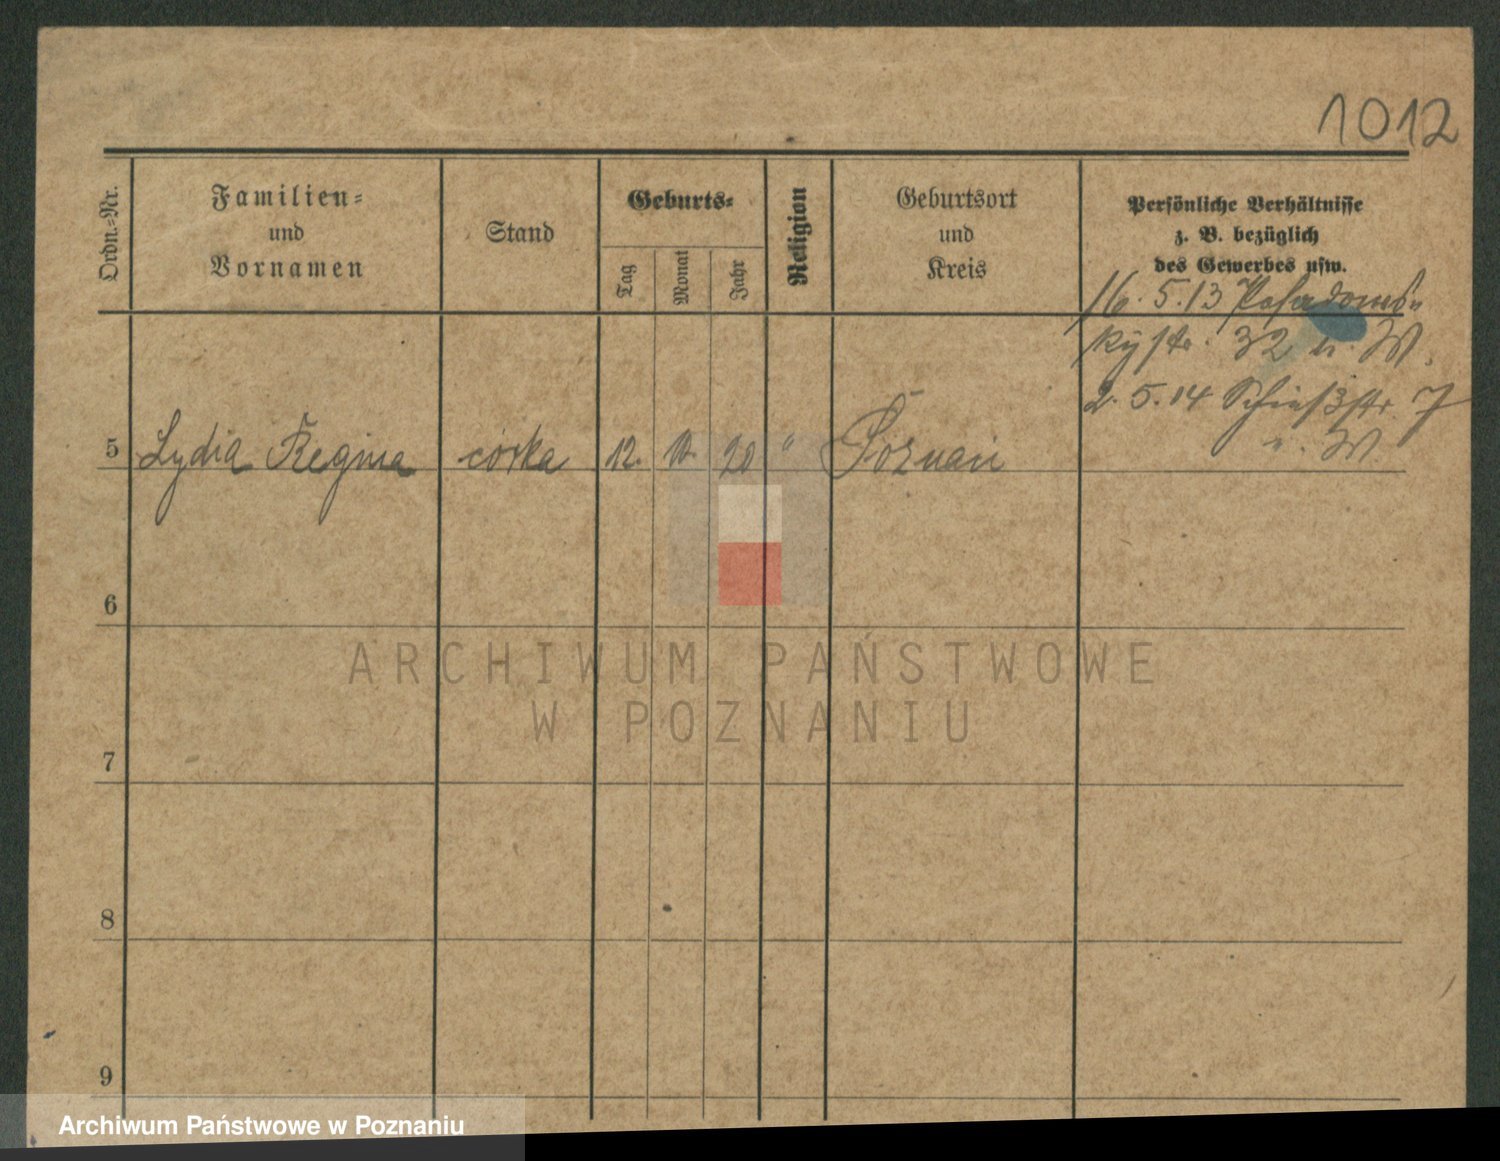 1012
Ordn.-Nr.
Familien-
und
Vornamen
Stand
Geburts-
Tag
Monat
Jahr
Religion
Geburtsort
und
Kreis
Persönliche Verhältnisse
z. B. bezüglich
des Gewerbes usw.
16. 5. 13 Posadows-
kystr. 32 b. W.
2. 5. 14 Schießstr. 7
b. W
5 Lydia Regina córka 12. 20 " Poznań
6
7
8
9
ARCHIWUM PAŃSTWOWE
W POZNANIU
Archiwum Państwowe w Poznaniu